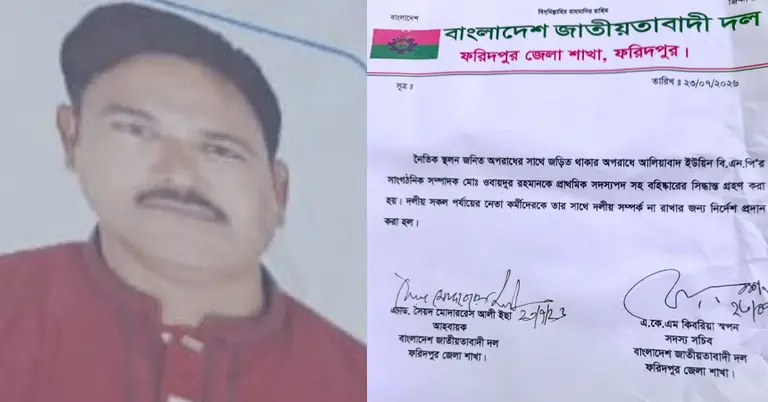 বিস্‌মিল্লাহির রাহমানির রাহিম
বাংলাদেশ
বাংলাদেশ জাতীয়তাবাদী দল
ফরিদপুর জেলা শাখা, ফরিদপুর।
সূত্র ঃ
তারিখ ঃ ২৩/০৭/২০২৬
নৈতিক স্থলন জনিত অপরাধের সাথে জড়িত থাকার অপরাধে আলিয়াবাদ ইউয়িন বি.এন.পি'র
সাংগঠনিক সম্পাদক মোঃ ওবায়দুর রহমানকে প্রাথমিক সদস্যপদ সহ বহিষ্কারের সিদ্ধান্ত গ্রহণ করা
হয়। দলীয় সকল পর্যায়ের নেতা কর্মীদেরকে তার সাথে দলীয় সম্পর্ক না রাখার জন্য নির্দেশ প্রদান
করা হল।
এ্যাড. সৈয়দ মোদাররেস আলী ইছা
আহবায়ক
বাংলাদেশ জাতীয়তাবাদী দল
ফরিদপুর জেলা শাখা।
এ.কে.এম কিবরিয়া স্বপন
সদস্য সচিব
বাংলাদেশ জাতীয়তাবাদী দল
ফরিদপুর জেলা শাখা।